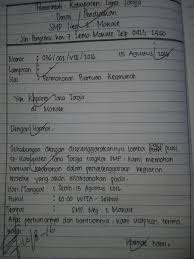 Pemerintah Kabupaten Tana Toraja
Dinas Pendidikan
SMP Neg. 2 Makale
Jln Pongtiku No. 2 Makale Telp 0423
Nomor : 096/001/VIII/2016 15 Agustus 2016
Lampiran : -
Perihal : Permohonan Bantuan Keamanan
Yth. Kapolres Tana Toraja
Di Makale
Dengan Hormat,
Sehubungan dengan diselenggarakannya lomba
se-Kabupaten Tana Toraja tingkat SMP, kami memohon
bantuan keamanan dalam penyelenggaraan kegiatan
tersebut yang akan dilaksanakan pada :
Hari / Tanggal : Senin, 15 Agustus 2016
Pukul : 10.00 WITA - Selesai
Tempat : SMP Neg. 2 Makale
Atas perhatiannya dan bantuannya, kami ucapkan terima
Hormat kami,